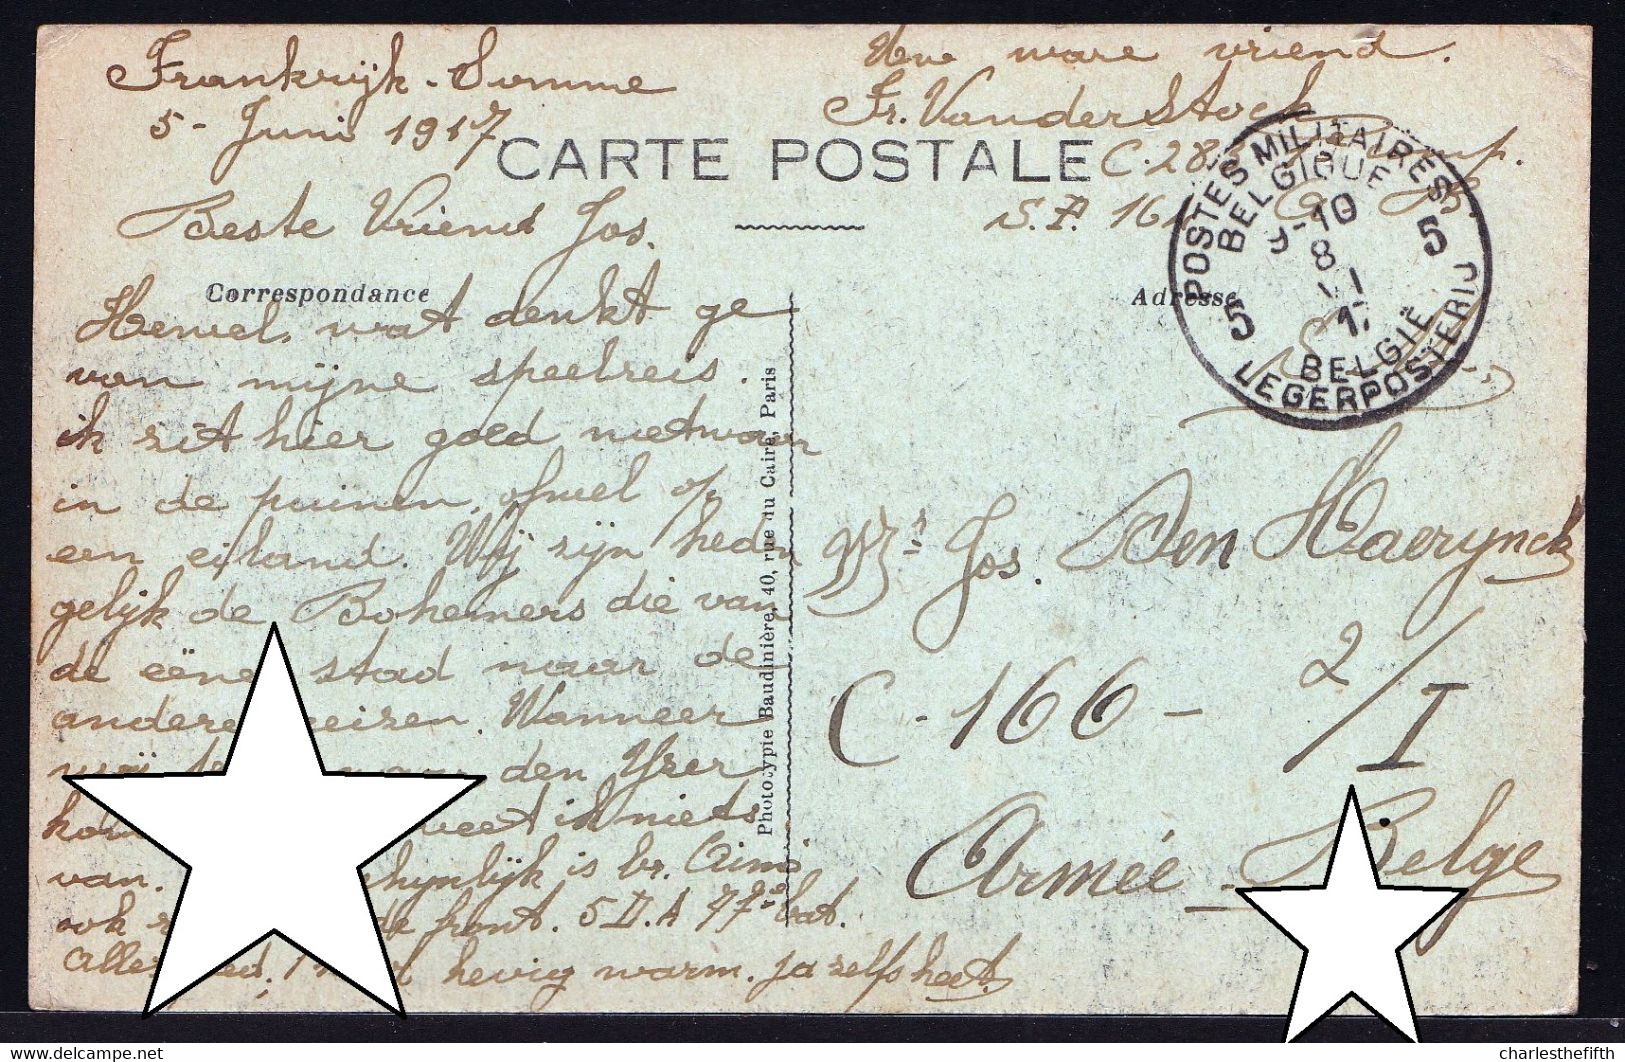 Frankrijk - Somme
5 - Juni 1917
Uw ware vriend.
Fr. Vander Stock
C. 28
S.P. 161
CARTE POSTALE
POSTES MILITAIRES
BELGIQUE
9-10
8
VI
17
5 5
BELGIË
LEGERPOSTERIJ
Beste Vriend Jos.
Correspondance
Adresse
Hewel, wat denkt ge
van mijne speelreis.
ik zit hier goed nietwaar
in de puinen, ofwel op
een eiland. Wij zijn heden
gelijk de Bohemers die van
de eëne stad naar de
andere reizen. Wanneer
wij den Yser
weet ik niets
van. is br. Aimé
ook de front. 5 D.A 77e bat.
hevig warm. ja zelfs heet.
Photo-typie Baudinière, 40, rue du Caire, Paris
Mr Jos. Den Haerynck
C - 166 - 2/I
Armée Belge
charlesthefifth
www.delcampe.net